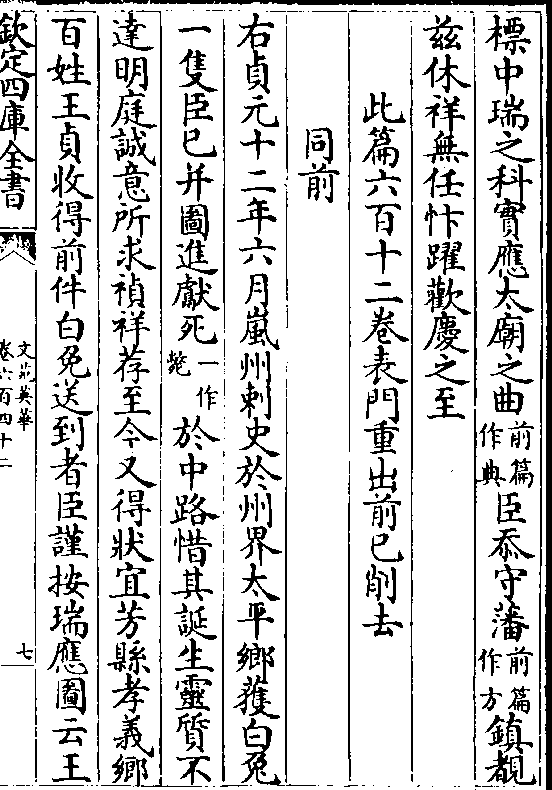 標中瑞之科實應太廟之曲前篇作典臣忝守藩前篇作方鎮覩
兹休祥無任忭躍歡慶之至
此篇六百十二卷表門重出前已削去
同前
右貞元十二年六月嵐州刺史於州界太平鄉獲白兔
一隻臣已并圖進獻死一作斃於中路惜其誕生靈質不
達明庭誠意所求禎祥荐至今又得狀宜芳縣孝義鄉
百姓王貞收得前件白兔送到者臣謹按瑞應圖云王
欽定四庫全書
文苑英華
卷六百四十二
七